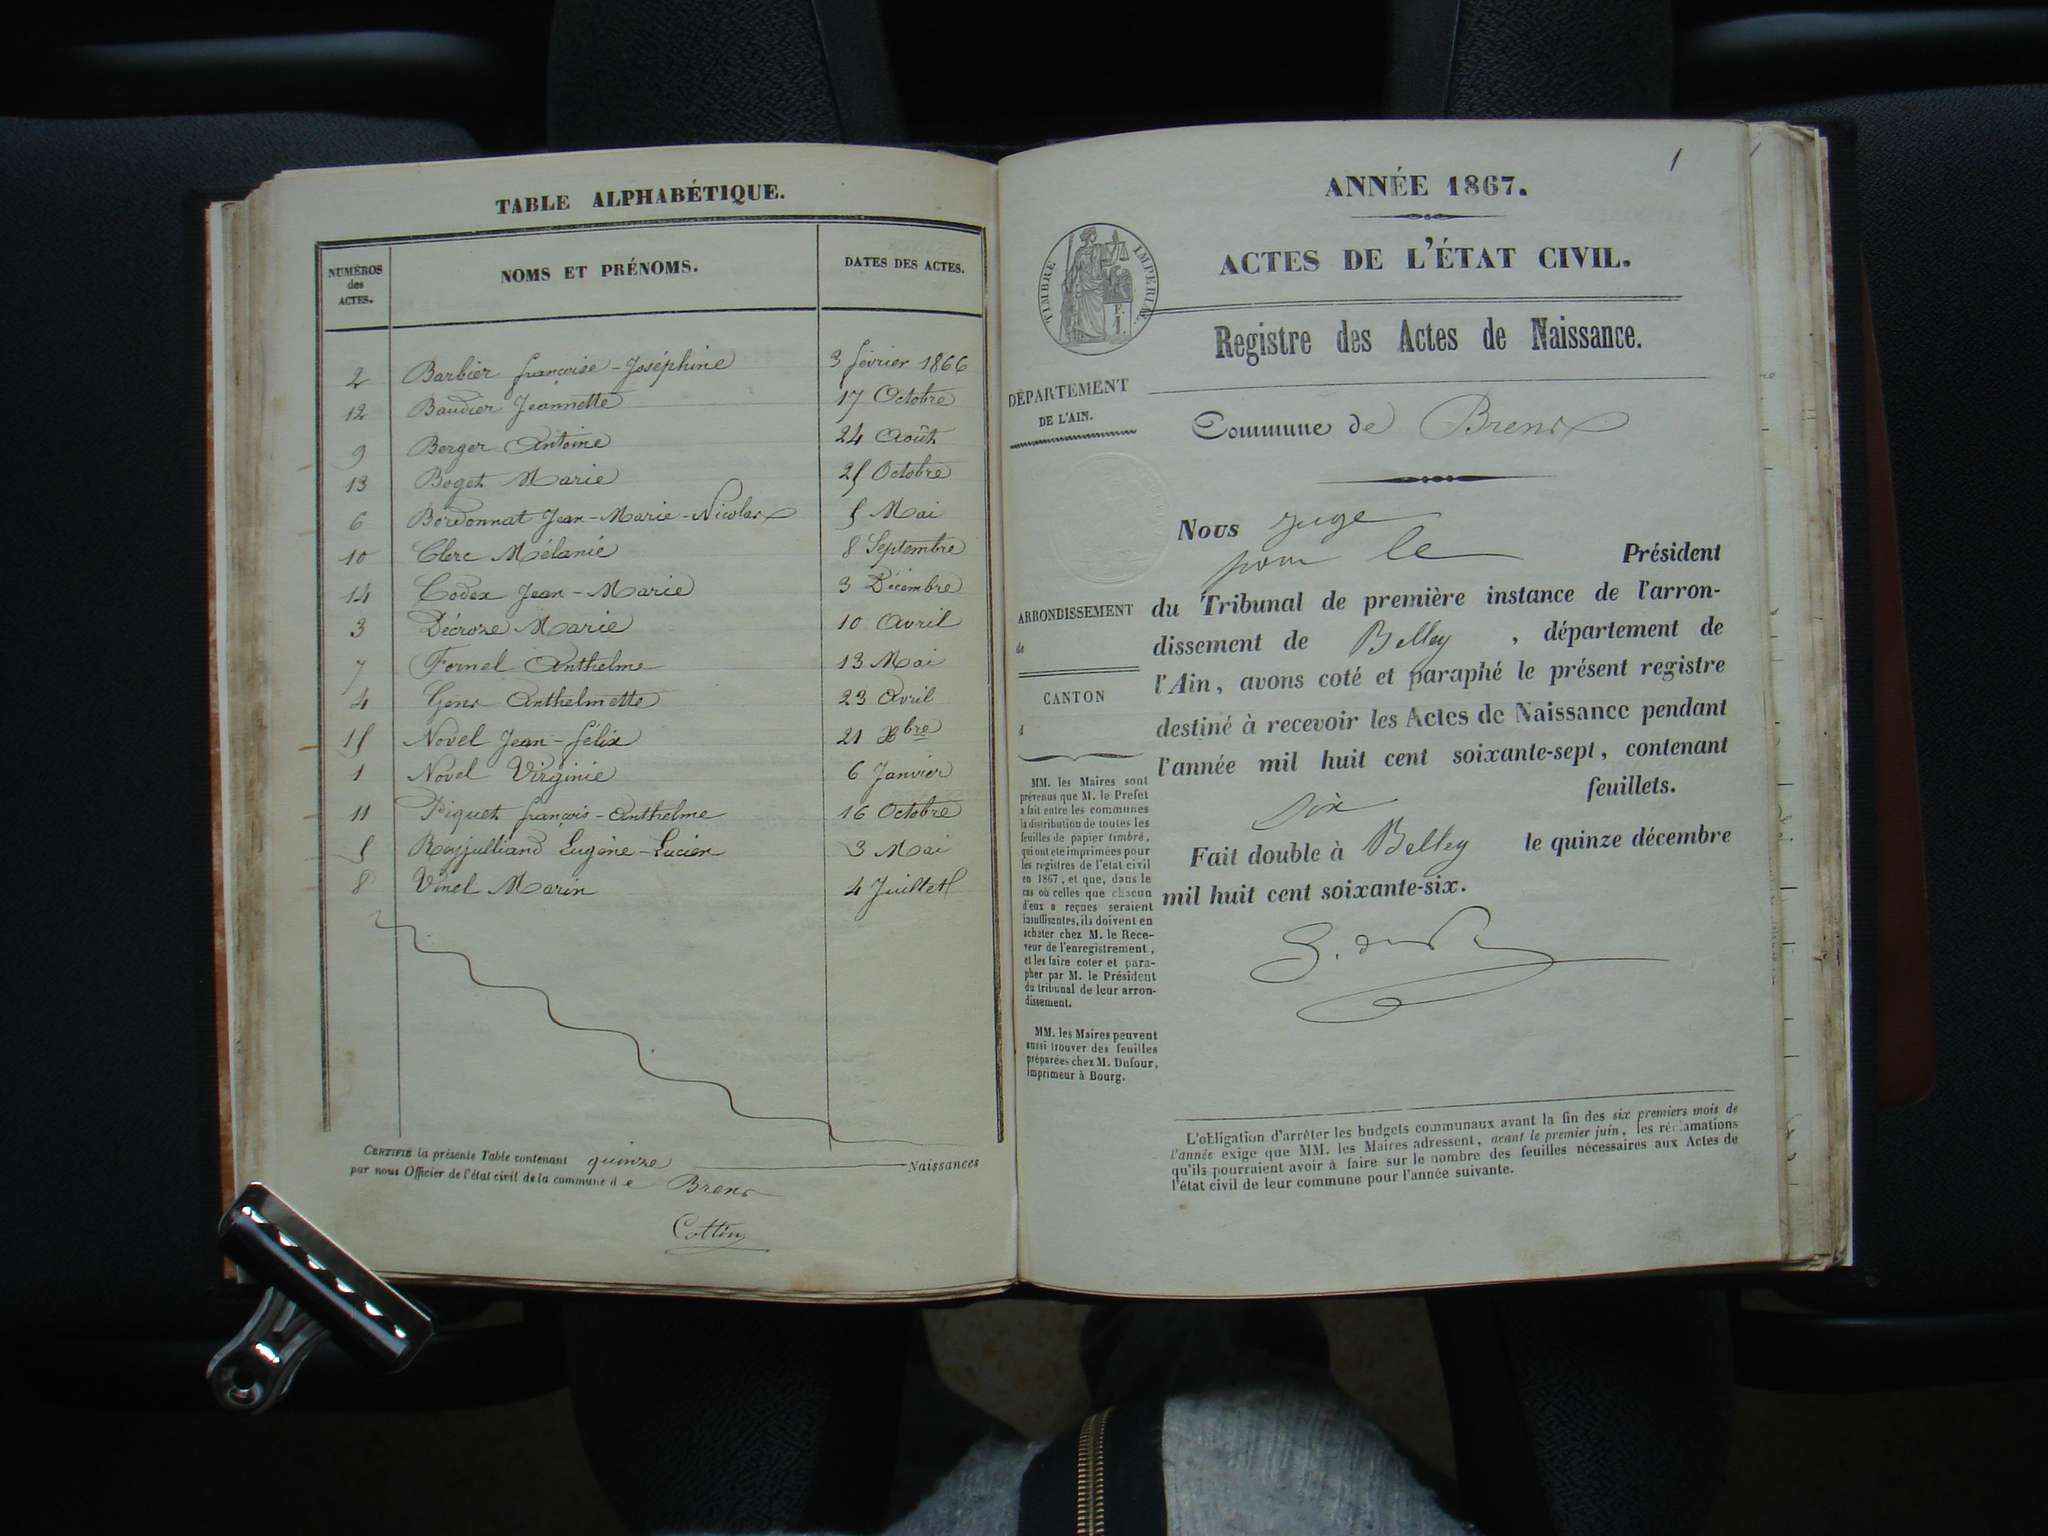 TABLE ALPHABÉTIQUE.
NUMÉROS des ACTES. NOMS ET PRÉNOMS. DATES DES ACTES.
2 Barbier françoise-Joséphine 3 février 1866
12 Baudier Jeannette 17 Octobre
9 Berger Antoine 24 Août
13 Boget Marie 25 Octobre
6 Bordonnat Jean-Marie-Nicolas 5 Mai
10 Clerc Mélanie 8 Septembre
14 Codex Jean-Marie 3 Décembre
3 Décroze Marie 10 Avril
7 Fornel Anthelme 13 Mai
4 Gens Anthelmette 23 Avril
15 Novel Jean-félix 21 Xbre
1 Novel Virginie 6 Janvier
11 Piquet françois-Anthelme 16 Octobre
5 Eugène-Lucien 3 Mai
8 Vinel Marin 4 Juillet
CERTIFIÉ la présente Table contenant quinze Naissances
par nous Officier de l'état civil de la commune de Brens
Cottin
1
ANNÉE 1867.
ACTES DE L'ÉTAT CIVIL.
TIMBRE IMPERIAL
Registre des Actes de Naissance.
DÉPARTEMENT
DE L'AIN.
Commune de Brens
ARRONDISSEMENT
de
CANTON
d
MM. les Maires sont
prévenus que M. le Prefet
a fait entre les communes
la distribution de toutes les
feuilles de papier timbré,
qui ont été imprimées pour
les registres de l'état civil
en 1867, et que, dans le
cas où celles que chacun
d'eux a reçues seraient
insuffisantes, ils doivent en
acheter chez M. le Rece-
veur de l'enregistrement,
et les faire coter et para-
pher par M. le Président
du tribunal de leur arron-
dissement.
MM. les Maires peuvent
aussi trouver des feuilles
préparées chez M. Dufour,
imprimeur à Bourg.
Nous juge
pour le Président
du Tribunal de première instance de l'arron-
dissement de Belley, département de
l'Ain, avons coté et paraphé le présent registre
destiné à recevoir les Actes de Naissance pendant
l'année mil huit cent soixante-sept, contenant
feuillets.
Fait double à Belley le quinze décembre
mil huit cent soixante-six.
L'obligation d'arrêter les budgets communaux avant la fin des six premiers mois de
l'année exige que MM. les Maires adressent, avant le premier juin, les réclamations
qu'ils pourraient avoir à faire sur le nombre des feuilles nécessaires aux Actes de
l'état civil de leur commune pour l'année suivante.